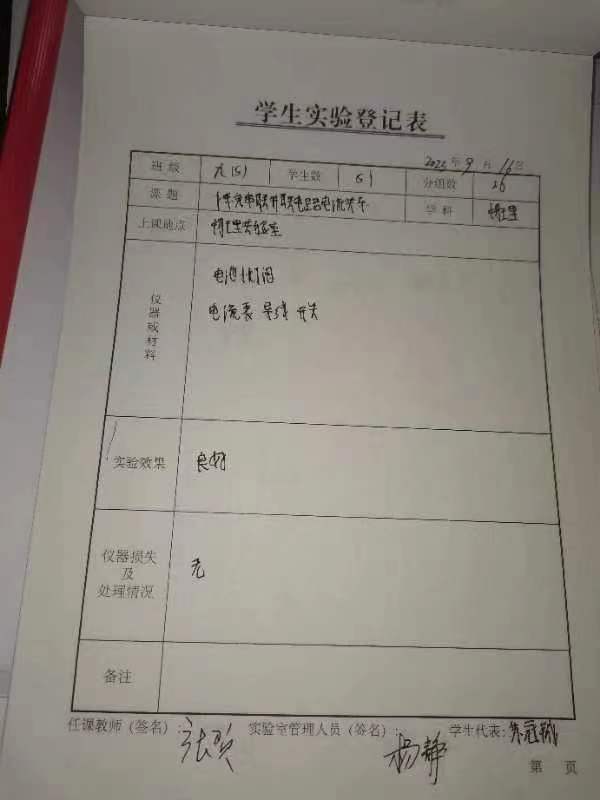 学生实验登记表
2022年9月16日
班级 九(5) 学生数 51 分组数 26
课题 探究串联并联电路电流关系 学科 物理
上课地点 物理实验室
仪器或材料 电池 灯泡
电流表 导线 开关
实验效果 良好
仪器损失
及
处理情况 无
备注
任课教师(签名): 实验室管理人员(签名): 杨静 学生代表:
第 页